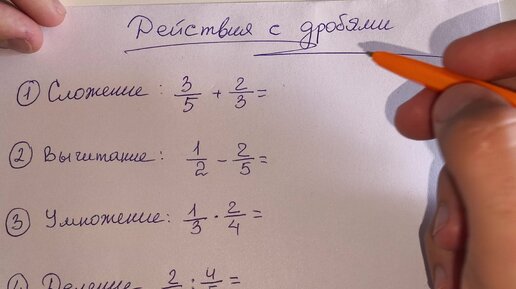 Действия с дробями
① Сложение: 3/5 + 2/3 =
② Вычитание: 1/2 - 2/5 =
③ Умножение: 1/3 · 2/4 =
Деление